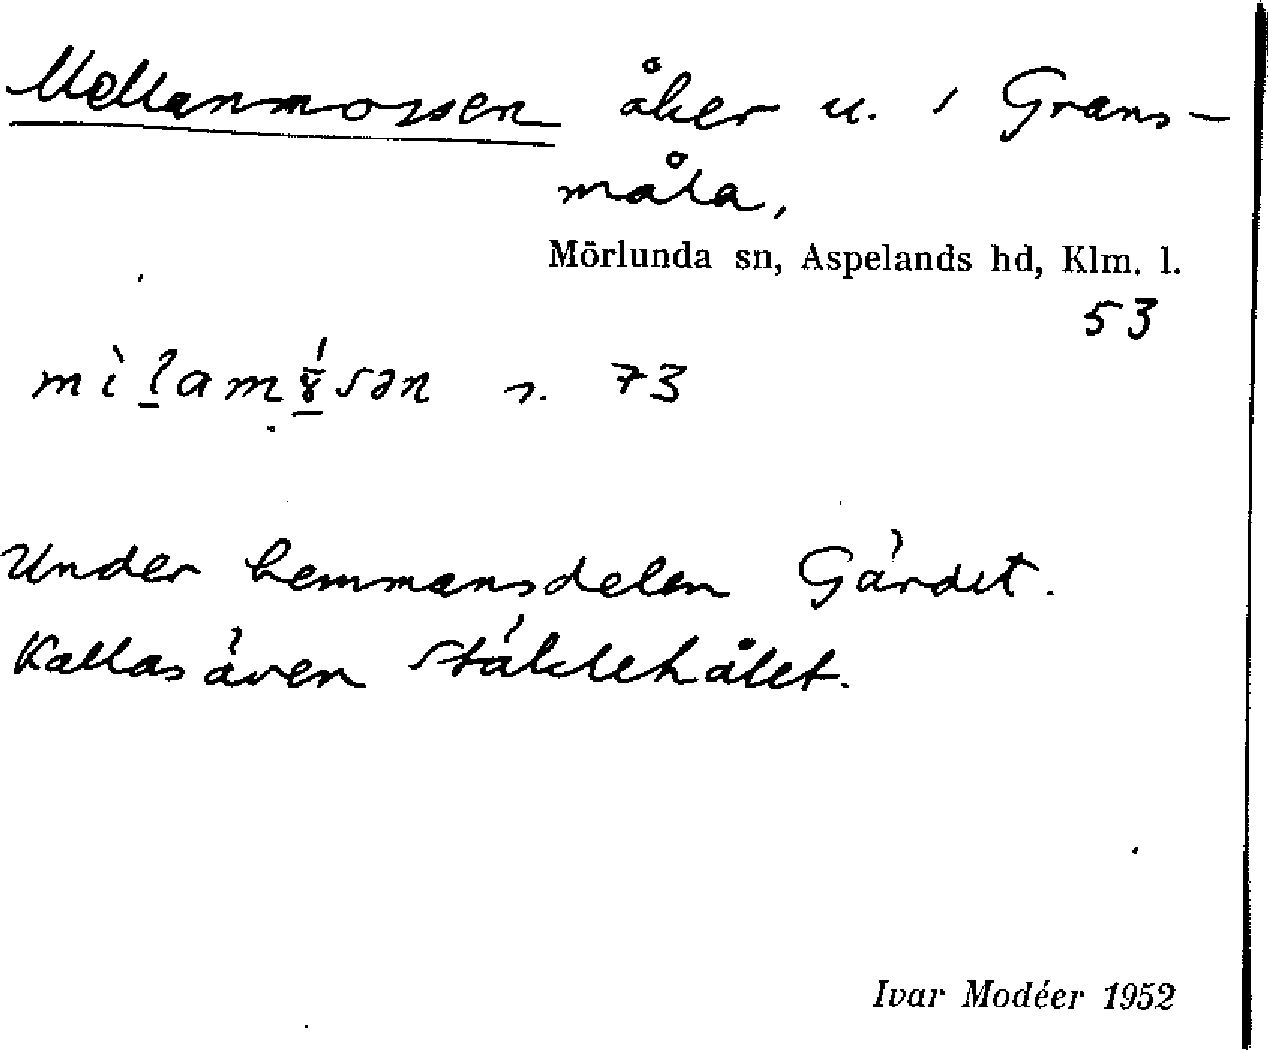 Mellanmossen åker u. i Grans-
måla,
Mörlunda sn, Aspelands hd, Klm. l.
53
s. 73
Under hemmansdelen Gärdet.
Kallas även
Ivar Modéer 1952